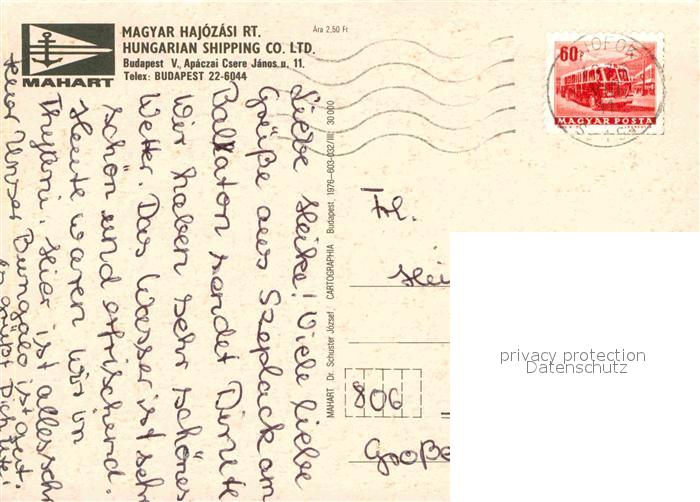 MAHART
MAGYAR HAJÓZÁSI RT.
HUNGARIAN SHIPPING CO. LTD.
Budapest V., Apáczai Csere János u. 11.
Telex: BUDAPEST 22-6044
Ára 2,50 Ft
60f
MAGYAR POSTA
Liebe Heike! Viele liebe
Grüße aus Szeplack am
Ballaton sendet Dir Ute
Wir haben sehr schönes
Wetter. Das Wasser ist sehr
schön und erfrischend.
Heute waren wir in
Thyani. Hier ist alles sehr
teuer Unser Bungalo ist gut.
grüßt Dich Ute!
MAHART Dr. Schuster József, CARTOGRAPHIA Budapest, 1976-603-032/III. 30 000
Frl.
Hei
806
Große
privacy protection
Datenschutz